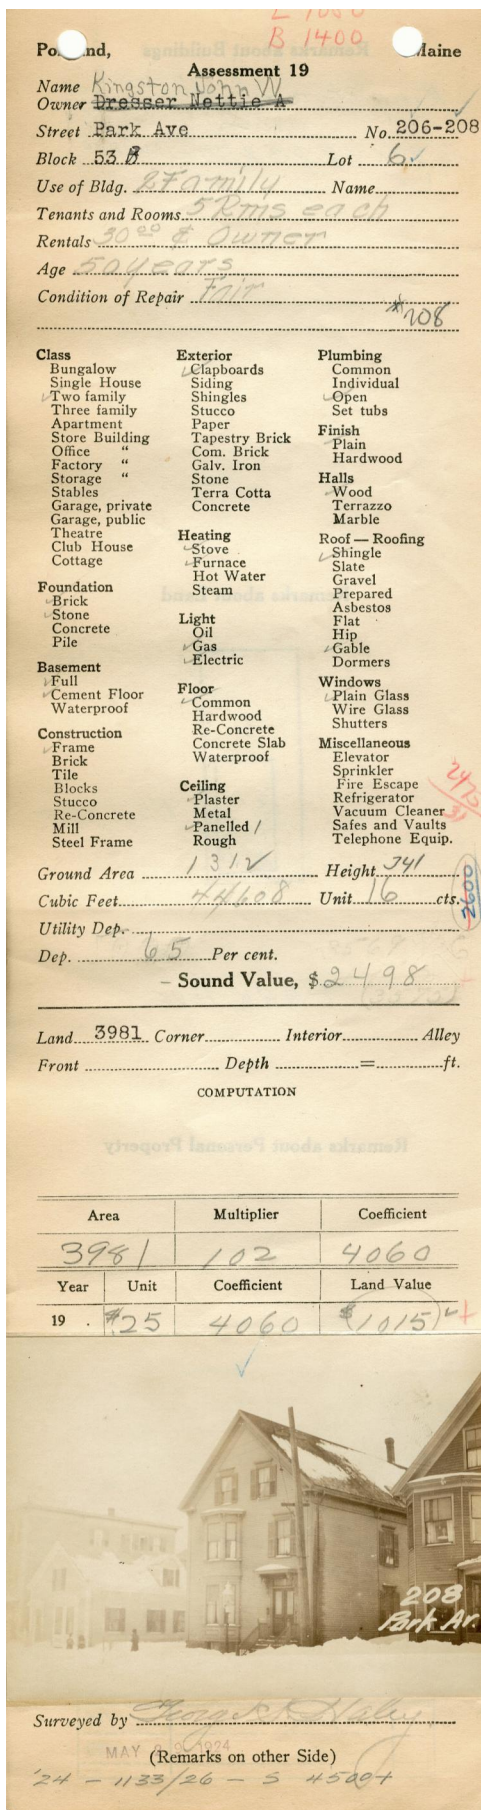 L 1050
B 1400
Portland, Maine
Assessment 19
Name Kingston John W
Owner Dresser Nettie A
Street Park Ave No. 206-208
Block 53 B Lot 6
Use of Bldg. 2 Family Name
Tenants and Rooms 5 Rms each
Rentals 30 00 & Owner
Age 50 years
Condition of Repair Fair
*208
Class
Bungalow
Single House
✓Two family
Three family
Apartment
Store Building
Office "
Factory "
Storage "
Stables
Garage, private
Garage, public
Theatre
Club House
Cottage
Foundation
✓Brick
✓Stone
Concrete
Pile
Basement
✓Full
✓Cement Floor
Waterproof
Construction
✓Frame
Brick
Tile
Blocks
Stucco
Re-Concrete
Mill
Steel Frame
Exterior
✓Clapboards
Siding
Shingles
Stucco
Paper
Tapestry Brick
Com. Brick
Galv. Iron
Stone
Terra Cotta
Concrete
Heating
✓Stove
✓Furnace
Hot Water
Steam
Light
Oil
✓Gas
✓Electric
Floor
✓Common
Hardwood
Re-Concrete
Concrete Slab
Waterproof
Ceiling
✓Plaster
Metal
✓Panelled /
Rough
Plumbing
Common
Individual
✓Open
Set tubs
Finish
✓Plain
Hardwood
Halls
✓Wood
Terrazzo
Marble
Roof — Roofing
✓Shingle
Slate
Gravel
Prepared
Asbestos
Flat
Hip
✓Gable
Dormers
Windows
✓Plain Glass
Wire Glass
Shutters
Miscellaneous
Elevator
Sprinkler
Fire Escape
Refrigerator
Vacuum Cleaner
Safes and Vaults
Telephone Equip.
2475
31
2600
Ground Area 1312 Height 34
Cubic Feet 44608 Unit 16 cts.
Utility Dep.
Dep. 65 Per cent.
Sound Value, $ 2498
Land 3981 Corner Interior Alley
Front Depth = ft.
COMPUTATION
Area Multiplier Coefficient
3981 102 4060
Year Unit Coefficient Land Value
19 . $.25 4060 $1015
208
Park Av.
Surveyed by George H. Haley
MAY 1924
(Remarks on other Side)
'24 - 1133/26 - S 4500+